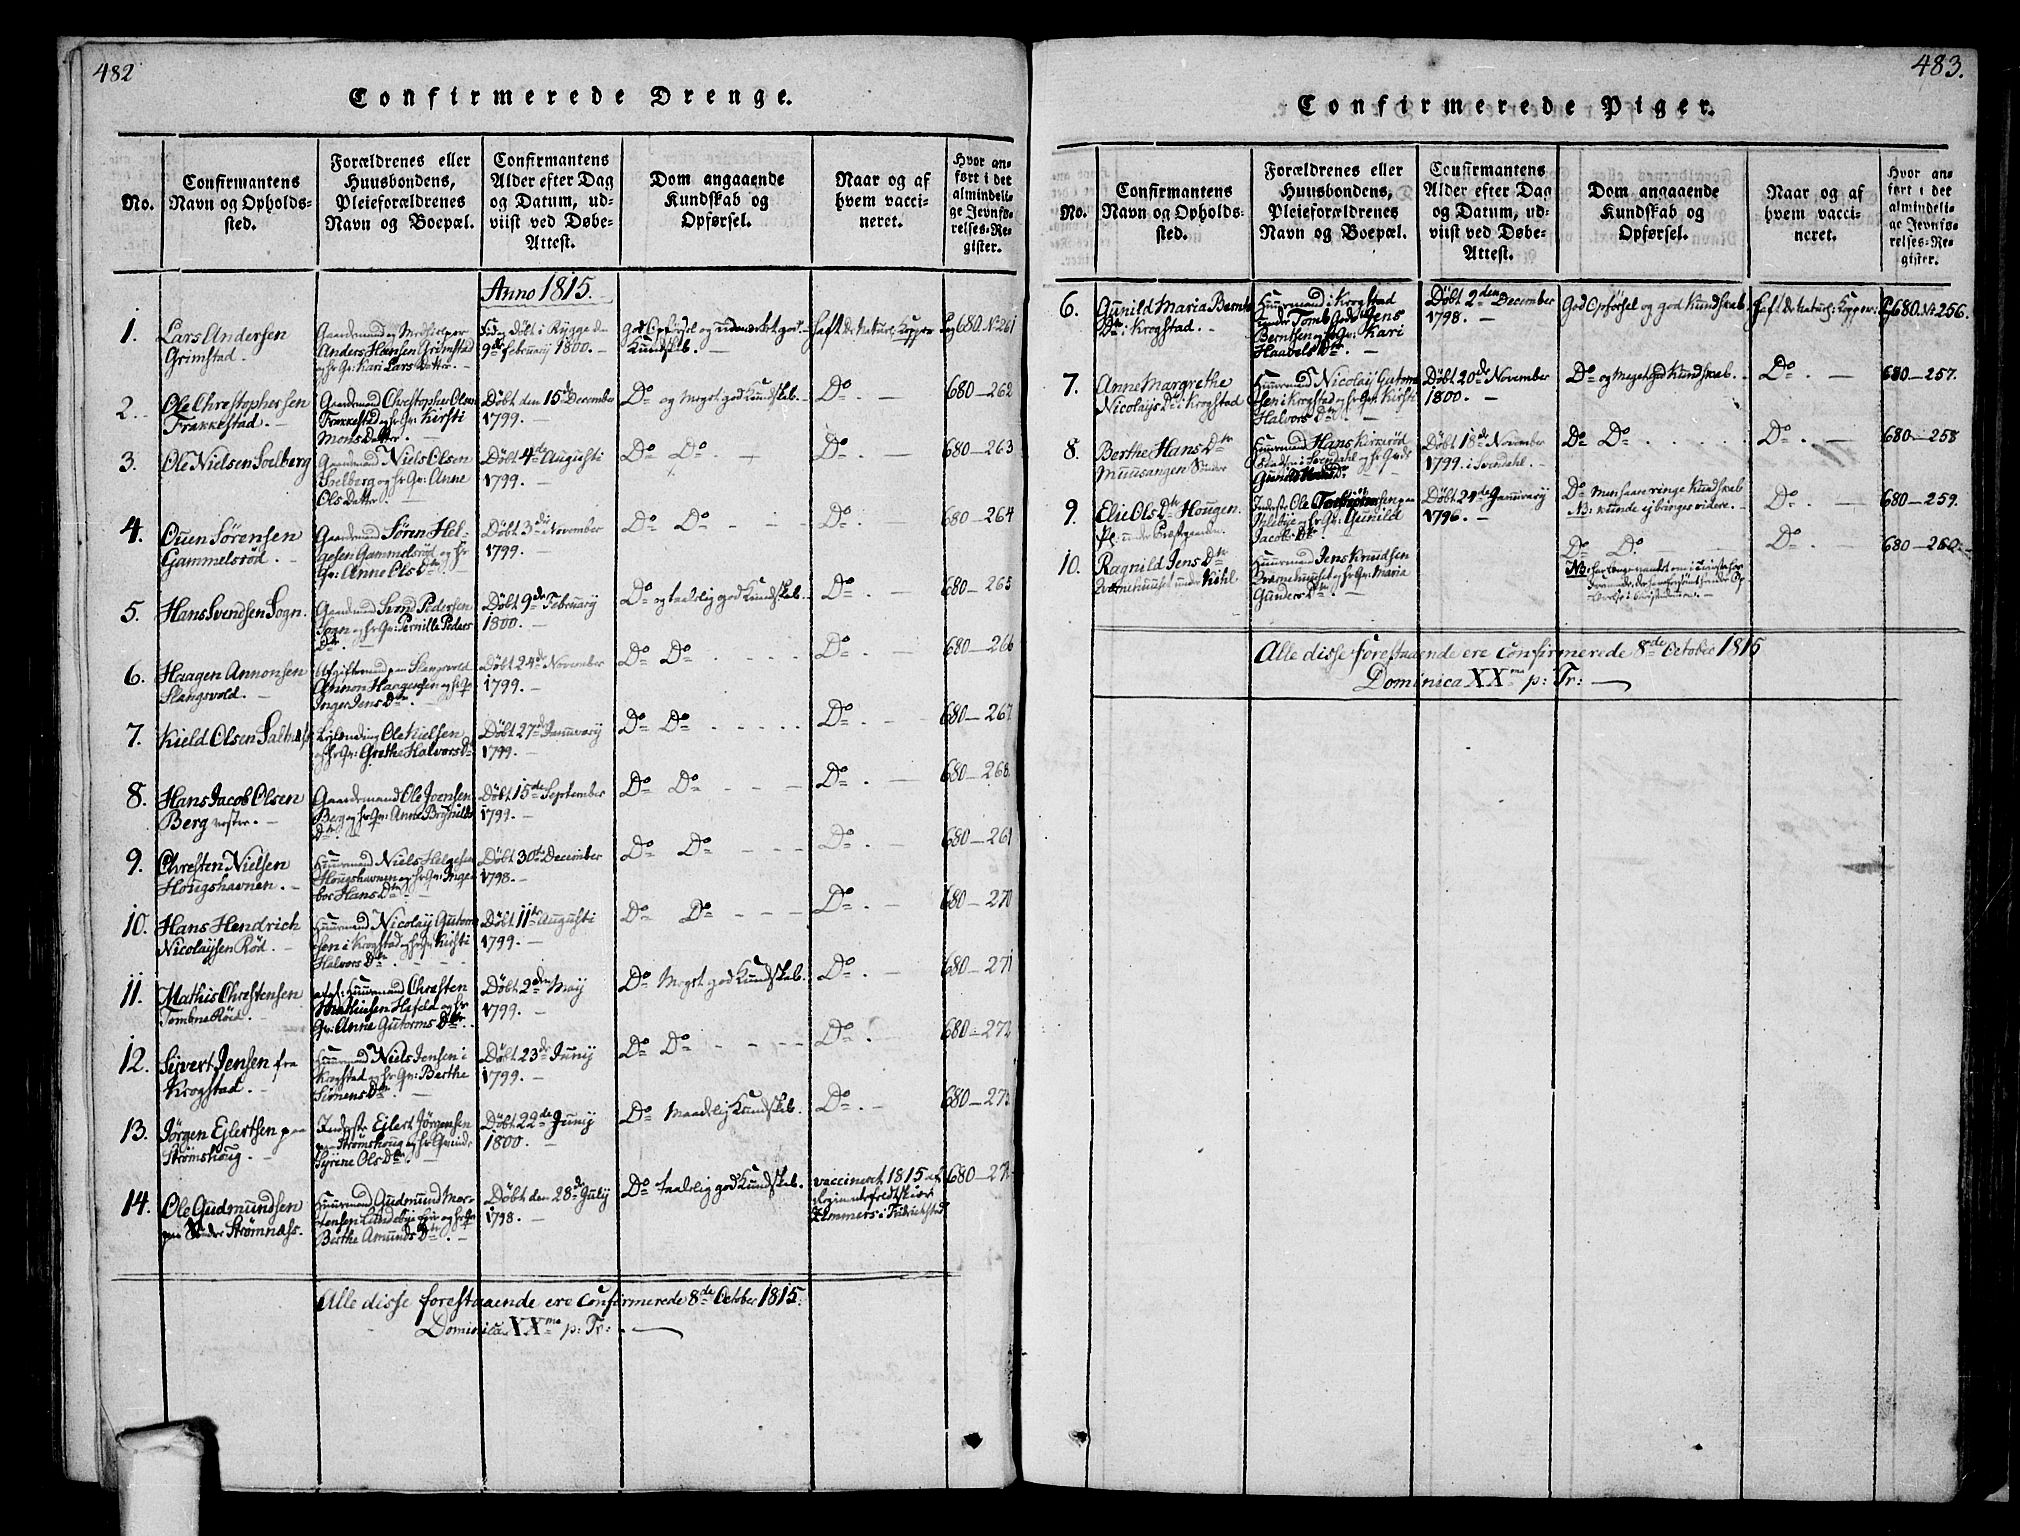 482
Confirmerede Drenge.
No.
Confirmantens
Navn og Opholds-
sted.
Forældrenes eller
Huusbondens,
Pleieforældrenes
Navn og Boepæl.
Confirmantens
Alder efter Dag
og Datum, ud-
viist ved Døbe-
Attest.
Dom angaaende
Kundskab og
Opførsel.
Naar og af
hvem vacci-
neret.
Hvor an-
ført i det
almindeli-
ge Jevnfø-
relses-Re-
gister.
Anno 1815.
1.
Lars Andersen
Grimstad.
Gaardmand og Medhielper
Anders Hansen Grimstad
og hr Gv: Kari Lars Datter.
Fød og døbt i Rygge d
9de februarÿ 1800.
God Opførsel og udmærket god
Kundskab.
haft de naturl: Kopper
pag 680. No 261
2.
Ole Chrestophersen
Frækkestad.
Gaardmand Chrestopher Olsen
Frækkestad og hr Gv: Kirsti
Mons Datter.
Døbt den 15de December
1799.
Do og meget god Kundskab.
Do
680 - 262
3.
Ole Nielsen Soelberg
Gaardmand Niels Olsen
Soelberg og hr Gv: Anne
Ols Datter.
Døbt 4de Augusti
1799.
Do Do
Do
680 - 263
4.
Ouen Sørensen
Gammelsrød.
Gaardmand Søren Hel-
gesen Gammelsrød og hr
Gv: Anne Ols Dtr.
Døbt 3di November
1799.
Do Do
Do
680 - 264
5.
Hans Svendsen Sogn.
Gaardmand Svend Pedersen
Sogn og hr Gv: Pernille Peders
Dtr.
Døbt 9de Februarÿ
1800.
Do og taalelig god Kundskab.
Do
680 - 265
6.
Haagen Annonsen
Slangsvold.
Afgiftsmand paa Slangsvold
Annon Haagensen og hr Gv:
Inger Jens Dtr.
Døbt 24de November
1799.
Do Do
Do
680 - 266
7.
Kield Olsen Saltnæs
Leilending Ole Kielsen
og hr Gv: Grethe Halvors Dtr
Døbt 27de Januarÿ
1799.
Do Do
Do
680 - 267
8.
Hans Jacob Olsen
Berg vester.
Gaardmand Ole Jvensen
Berg og hr Gv: Anne Brÿnilds
Dtr.
Døbt 15de September
1799.
Do Do
Do
680 - 268
9.
Chresten Nielsen
Hougshavnen.
Huusmand Niels Helgesen
Hougshavnen og hr Gv: Inge-
bor Hans Dtr.
Døbt 30te December
1798.
Do Do
Do
680 - 261
10.
Hans Hendrich
Nicolaÿsen Rød.
Huusmand Nicolaÿ Gutorm
sen i Krogstad og hr Gv: Kirsti
Halvors Dtr.
Døbt 11te Augusti
1799.
Do Do
Do
680 - 270
11.
Mathis Chrestensen
Tombne Røid.
Huusmand Chresten
Mathiesen Hafeld og hr
Gv: Anne Gutorms Dtr.
Døbt 2den Maÿ
1799.
Do Meget god Kundskab.
Do
680 - 271
12.
Sÿvert Jensen fra
Krogstad.
Huusmand Niels Jensen i
Krogstad og hr Gv: Berthe
Simens Dtr.
Døbt 23de Junÿ
1799.
Do Do
Do
680 - 272
13.
Jørgen Ejlertsen paa
Strømshoug.
Inderste Ejlert Jørgensen
paa Strømshoug og hr Qvinde
Sÿrene Ols Dtr.
Døbt 22de Junÿ
1800.
Do Maadelig Kundskab.
Do
680 - 273
14.
Ole Gudmundsen
paa under Strømnæss.
Huusmand Gudmund Mor-
tensen Lundebÿe Eje og hr Gv:
Berthe Amunds Dtr.
Døbt den 28de Julÿ
1798.
Do taalelig god Kundskab.
vaccineret 1815 af
Regimentsfeldtskiær
Emmers i Fridrichstad
680 - 274
Alle disse forestaaende ere Confirmerede 8de October 1815.
Dominica XXma p: Tr:
483.
Confirmerede Piger.
No.
Confirmantens
Navn og Opholds-
sted.
Forældrenes eller
Huusbondens,
Pleieforældrenes
Navn og Boepæl.
Confirmantens
Alder efter Dag
og Datum, ud-
viist ved Døbe-
Attest.
Dom angaaende
Kundskab og
Opførsel.
Naar og af
hvem vacci-
neret.
Hvor an-
ført i det
almindeli-
ge Jevnfø-
relses-Re-
gister.
6.
Gunild Maria Bernts
Dtr: Krogstad.
Huusmand i Krogstad
under Tomb Gods Jens
Berntsen og hr Gv: Kari
Haavels Dtr.
Døbt 2den December
1798.
God Opførsel og god Kundskab
haft de naturl: Kopper.
pag 680. No 256.
7.
Anne Margrethe
Nicolaÿs Dtr Krogstad
Huusmand Nicolaÿ Gutorm
sen i Krogstad og hr Gv: Kirsti
Halvors Dtr.
Døbt 20de November
1800.
Do og meget god Kundskab.
Do
680 - 257.
8.
Berthe Hans Dtr
Muusangen under
Huusmand Hans Kirkerød
Døbt 18de November
1799. i Svendahl.
Do Do
Do
680 - 258
9.
Elie Ols Dtr Hougen.
Pl: under Præstgaarden.
Inderste Ole Torbjørnsen paa
og hr Gv: Gunild
Jacobs Dtr.
Døbt 24de Januarÿ
1796.
Do Men saare ringe Kundskab
NB: kunde ej bringes videre.
Do
680 - 259.
10.
Ragnild Jens Dtr
Bromehuuset under Kihl.
Huusmand Jens Knudsen
Bromehuuset og hr Gv: Maria
Gunders Dtr.
Do Do
Do
680 - 260.
Alle disse forestaaende ere Confirmerede 8de October 1815
Dominica XXma p: Tr: